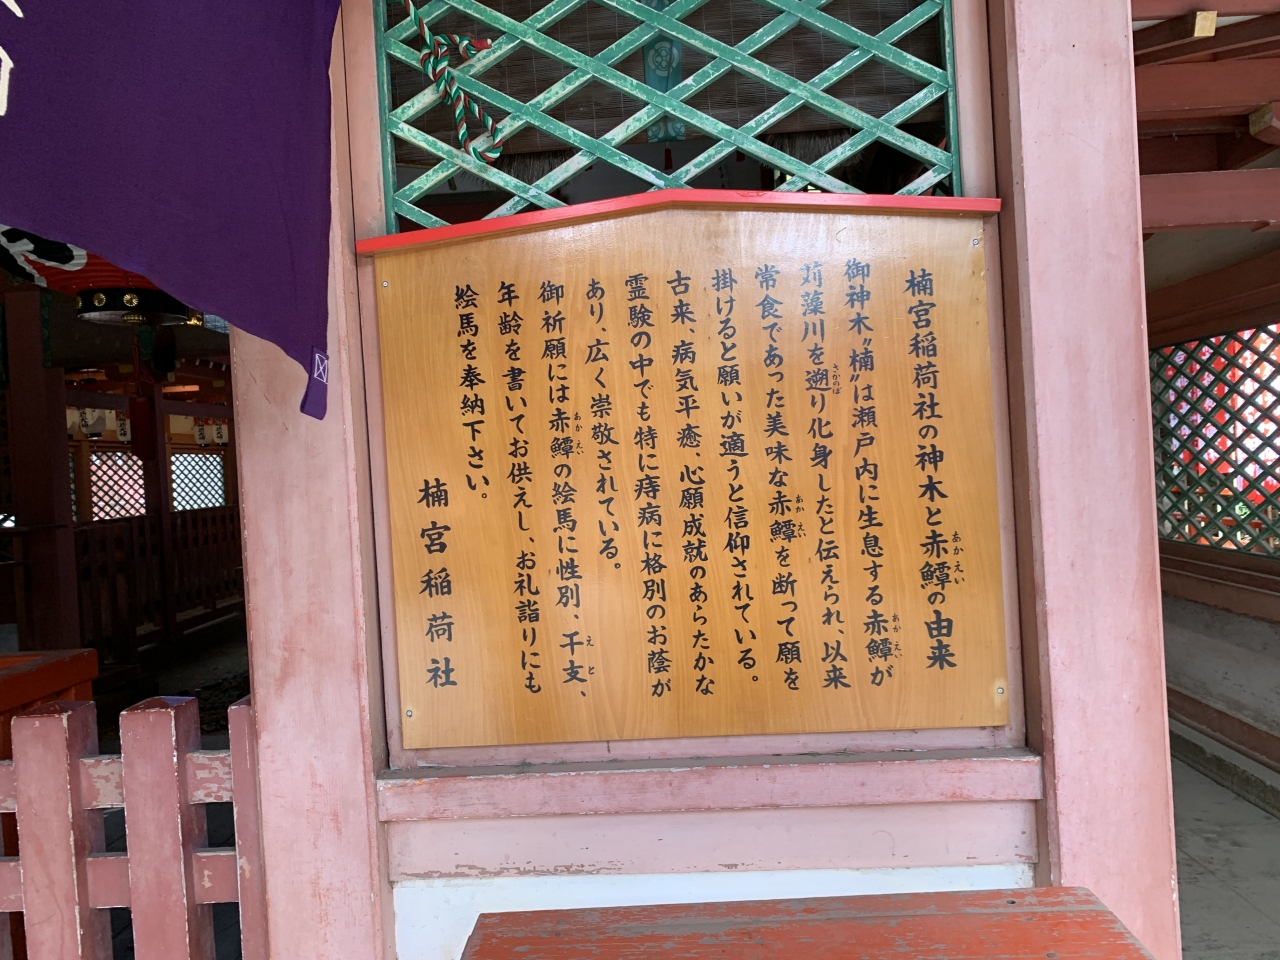 楠宮稲荷社の神木と赤鱏の由来
あかえい
御神木〝楠〟は瀬戸内に生息する赤鱏が
あかえい
苅藻川を遡り化身したと伝えられ、以来
さかのぼ
常食であった美味な赤鱏を断って願を
あかえい
掛けると願いが適うと信仰されている。
古来、病気平癒、心願成就のあらたかな
霊験の中でも特に痔病に格別のお蔭が
あり、広く崇敬されている。
御祈願には赤鱏の絵馬に性別、干支、
あかえい
えと
年齢を書いてお供えし、お礼詣りにも
絵馬を奉納下さい。
楠宮稲荷社